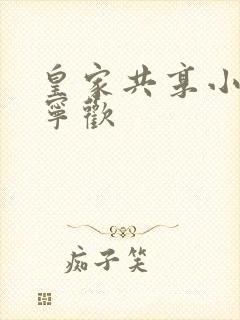 皇家共享小
寧歡
痴子笑